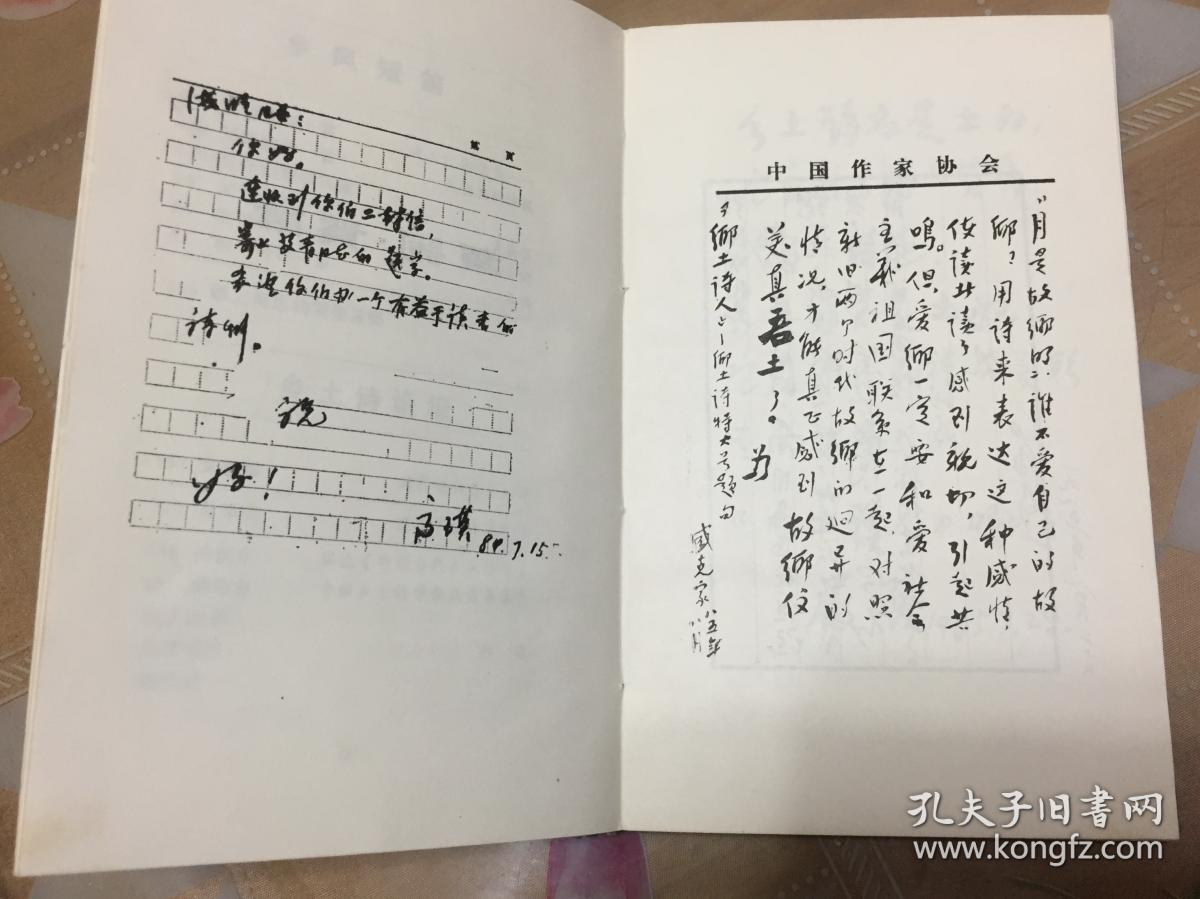 你好。
连收到你们二封信，
寄上
的题字。
祝你们办一个有益于读者的
诗刊。
祝
好！
84.7.15.
中国作家协会
“月是故乡明”，谁不爱自己的故
乡？用诗来表达这种感情，
使读者读了感到亲切，引起共
鸣。但，爱乡一定要和爱社会
主义祖国联系在一起，对照
新旧两个时代故乡的迥异的
情况，才能真正感到故乡信
美真吾土了。为
《乡土诗人》乡土诗特大号题句
臧克家 八五年
八月
孔夫子旧书网
www.kongfz.com